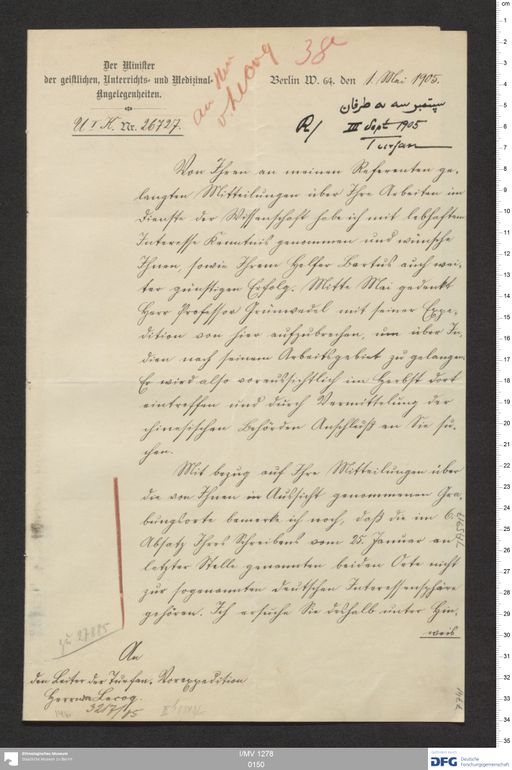 Der Minister
der geistlichen, Unterrichts- und Medizinal-
Angelegenheiten.
U I K. Nr. 26727.
an Herrn
v. Lecoq
38a
Berlin W. 64. den 1. Mai 1905.
R/ III Sept 1905
Turfan
Von Ihren an meinen Referenten ge-
langten Mitteilungen über Ihre Arbeiten im
Dienste der Wissenschaft habe ich mit lebhaftem
Interesse Kenntnis genommen und wünsche
Ihnen, sowie Ihrem Helfer Bartus auch wei-
ter günstigen Erfolg. Mitte Mai gedenkt
Herr Professor Grünwedel mit seiner Expe-
dition von hier aufzubrechen, um über In-
dien nach seinem Arbeitsgebiet zu gelangen.
Er wird also voraussichtlich im Herbst dort
eintreffen und durch Vermittelung der
chinesischen Behörden Anschluß an Sie su-
chen.
Mit bezug auf Ihre Mitteilungen über
die von Ihnen in Aussicht genommenen Gra-
bungsorte bemerke ich noch, daß die im 6.
Absatz Ihres Schreibens vom 25. Januar an
letzter Stelle genannten beiden Orte nicht
zur sogenannten deutschen Interessensphäre
gehören. Ich ersuche Sie deshalb unter Hin-
weis
An
den Leiter der Turfan-Vorexpedition
Herrn von Lecoq
Ethnologisches Museum
Staatliche Museen zu Berlin
I/MV 1278
0150
DFG Deutsche
Forschungsgemeinschaft